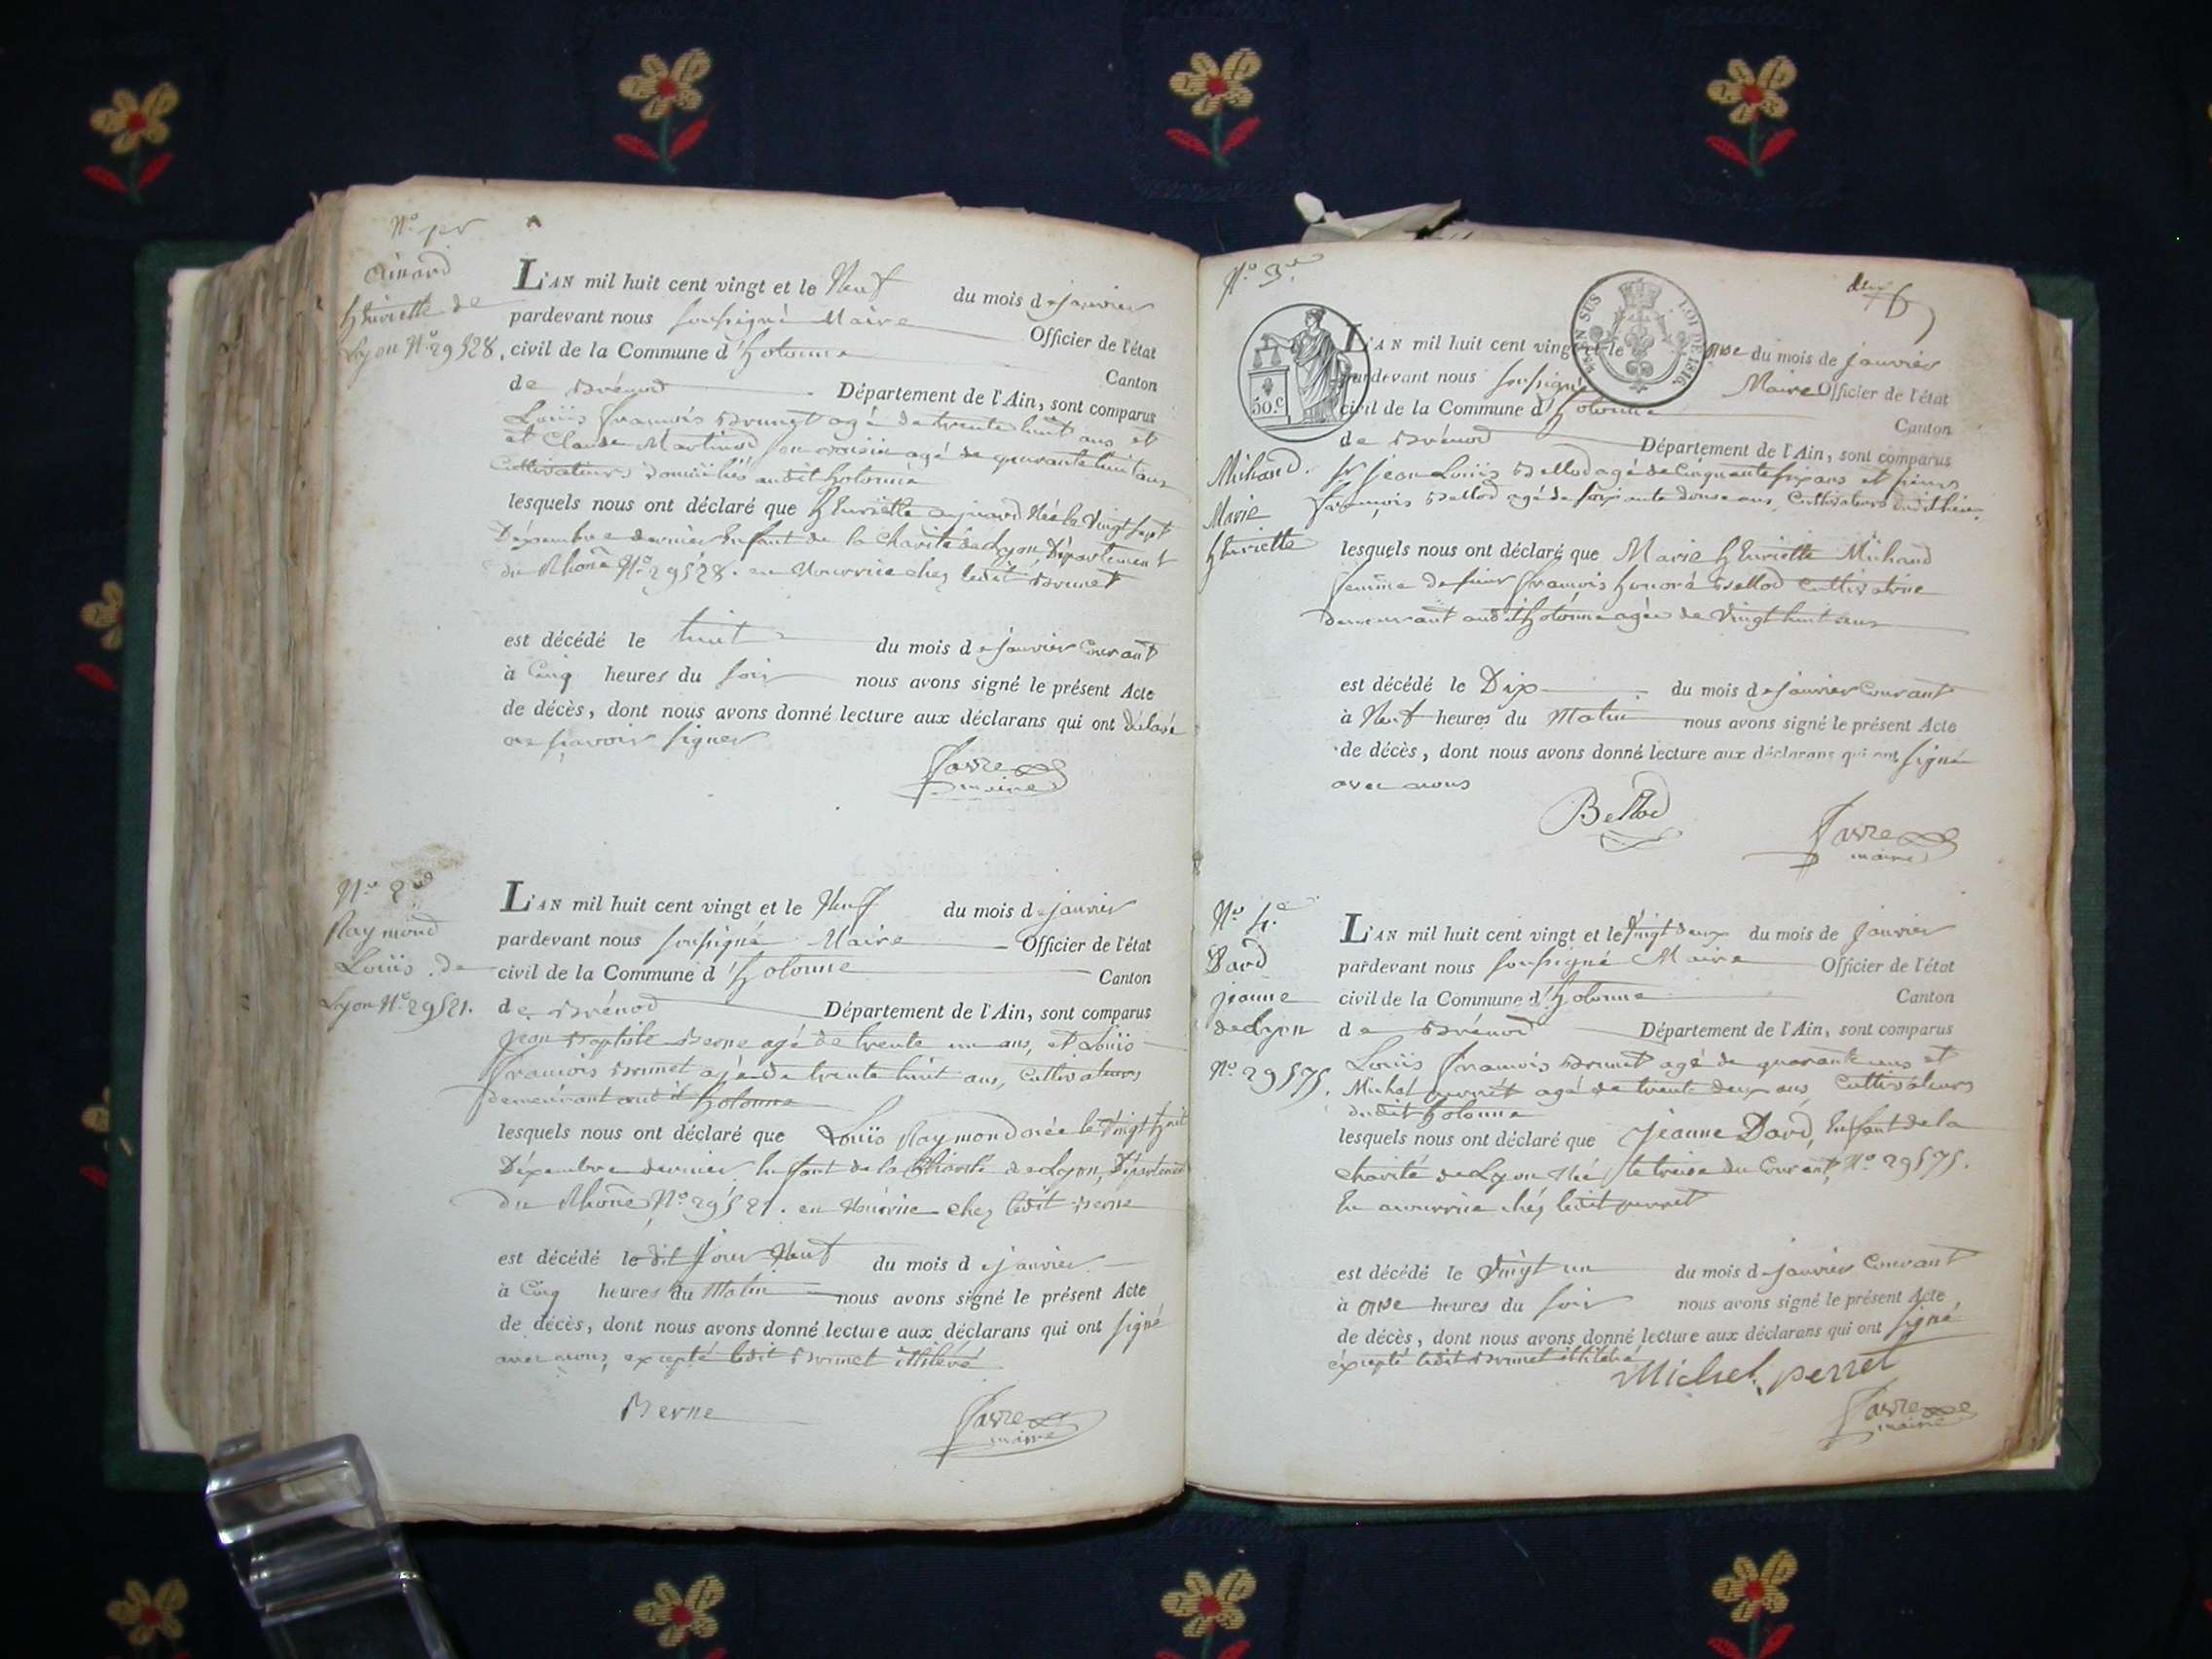 N.º 1er
Ainard
henriette de
Lyon N.º 29528.
L'AN mil huit cent vingt et le Neuf du mois de janvier
pardevant nous soussigné Maire Officier de l'état
civil de la Commune d'hotonne Canton
de Brénod Département de l'Ain, sont comparus
Louis françois Brunet agé de trente huit ans et
et Claude Martinod son voisin agé de quarante huit ans
Cultivateurs domiciliés audit hotonne
lesquels nous ont déclaré que henriette aynard Née le Vingt sept
Dépembre dernier Enfant de la Charité de Lyon, Département
du Rhône N.º 29528. en Nourrice chez ledit Brunet
est décédé le huit du mois de janvier Courant
à Cinq heures du soir nous avons signé le présent Acte
de décès, dont nous avons donné lecture aux déclarans qui ont déclaré
ne sçavoir signer
Favre
maire
N.º 2me
Raymond
Louis de
Lyon N.º 29521.
L'AN mil huit cent vingt et le Neuf du mois de janvier
pardevant nous soussigné Maire Officier de l'état
civil de la Commune d'hotonne Canton
de Brénod Département de l'Ain, sont comparus
jean Baptiste Berne agé de trente un ans, et Louis
françois Brunet agé de trente huit ans, Cultivateurs
demeurant audit hotonne
lesquels nous ont déclaré que Louis Raymond née le Vingt huit
Dépembre dernier Enfant de la Charité de Lyon, Département
du Rhône N.º 29521. en Nourrice chez ledit Berne
est décédé le dit jour Neuf du mois de janvier
à Cinq heures du Matin nous avons signé le présent Acte
de décès, dont nous avons donné lecture aux déclarans qui ont signé
avec nous, excepté ledit Brunet
Berne
Favre
maire
N.º 3e
deux
6
50.c
EN SUS
LOI DE 1816.
Michaud
Marie
henriette
L'AN mil huit cent vingt et le onse du mois de janvier
pardevant nous soussigné Maire Officier de l'état
civil de la Commune d'hotonne Canton
de Brénod Département de l'Ain, sont comparus
Sr. jean Louis Bellod agé de Cinquante six ans et sieur
françois Bellod agé de soixante douse ans, Cultivateurs dudit lieu.
lesquels nous ont déclaré que Marie henriette Michaud
femme de sieur françois honoré Bellod Cultivatrice
demeurant audit hotonne agée de Vingt huit ans
est décédé le Dix du mois de janvier Courant
à Neuf heures du Matin nous avons signé le présent Acte
de décès, dont nous avons donné lecture aux déclarans qui ont signé
avec nous
Bellod
Favre
maire
N.º 4e
Dard
jeanne
de Lyon
N.º 29575.
L'AN mil huit cent vingt et le Vingt deux du mois de janvier
pardevant nous soussigné Maire Officier de l'état
civil de la Commune d'hotonne Canton
de Brénod Département de l'Ain, sont comparus
Louis françois Brunet agé de quarante ans et
Michel perret agé de trente deux ans Cultivateurs
dudit hotonne
lesquels nous ont déclaré que jeanne Dard, Enfant de la
charité de Lyon Née le treise du Courant, N.º 29575.
En nourrice chéz ledit perret
est décédé le Vingt un du mois de janvier Courant
à onse heures du soir nous avons signé le présent Acte
de décès, dont nous avons donné lecture aux déclarans qui ont signé
excepté ledit Brunet
Michel perret
Favre
maire